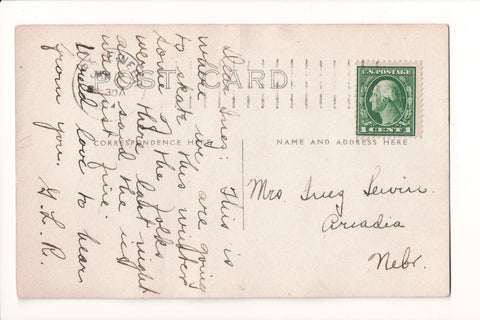 POST CARD
CORRESPONDENCE HERE
NAME AND ADDRESS HERE
U.S. POSTAGE
1 CENT 1
Dear Inez: This is
where we are going
to skate this winter
Some of the folks
were there last night
and said the ice
was just fine.
Would love to hear
from you. G.L.R.
Mrs. Inez Lewin.
Arcadia
Nebr.